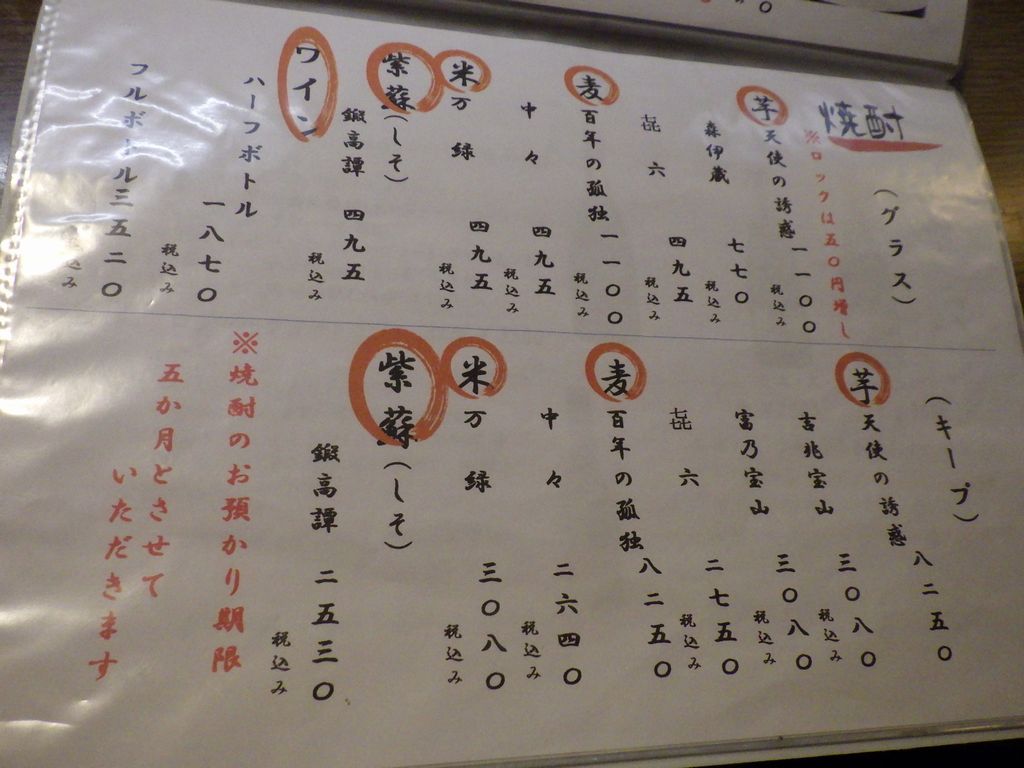 焼酎
※ロックは五〇円増し
(グラス)
芋 天使の誘惑 一一〇〇 税込み
森伊蔵 七七〇 税込み
㐂六 四九五 税込み
麦 百年の孤独 一一〇〇 税込み
中々 四九五 税込み
米 万緑 四九五 税込み
紫蘇(しそ)
鍛高譚 四九五 税込み
ワイン
ハーフボトル 一八七〇 税込み
フルボトル 三五二〇 税込み
(キープ)
芋 天使の誘惑 八二五〇
吉兆宝山 三〇八〇 税込み
富乃宝山 三〇八〇 税込み
㐂六 二七五〇 税込み
麦 百年の孤独 八二五〇
中々 二六四〇 税込み
米 万緑 三〇八〇 税込み
紫蘇(しそ)
鍛高譚 二五三〇 税込み
※焼酎のお預かり期限
五か月とさせて
いただきます